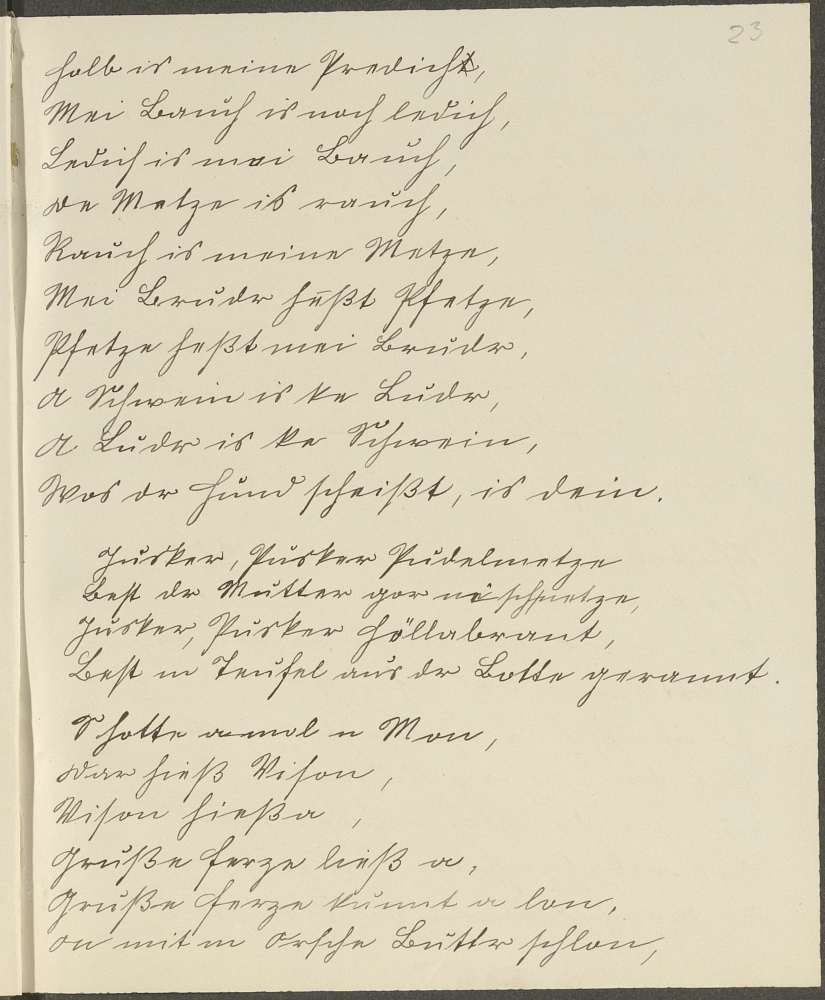 23
Holb is meine Predicht,
Mei Bauch is noch ledich,
Ledich is mei Bauch,
De Metze is rauch,
Rauch is meine Metze,
Mei Brudr häßt Pfetze,
Pfetze heßt mei Brudr,
A Schwein is ke Ludr,
A Ludr is ke Schwein,
Wos dr Hund scheißt, is dein.
Jusker, Pusker Pudelmetze
Best dr Mutter gor ni schnetze,
Jusker, Pusker Höllabrant,
Best m Teufel aus dr Botte gerannt.
S hotte amol n Mon,
Dar hieß Vison,
Vison hieß a,
Gruße Ferze ließ a,
Gruße Ferze kunnt a lon,
On mit m Orsche Buttr schlon,